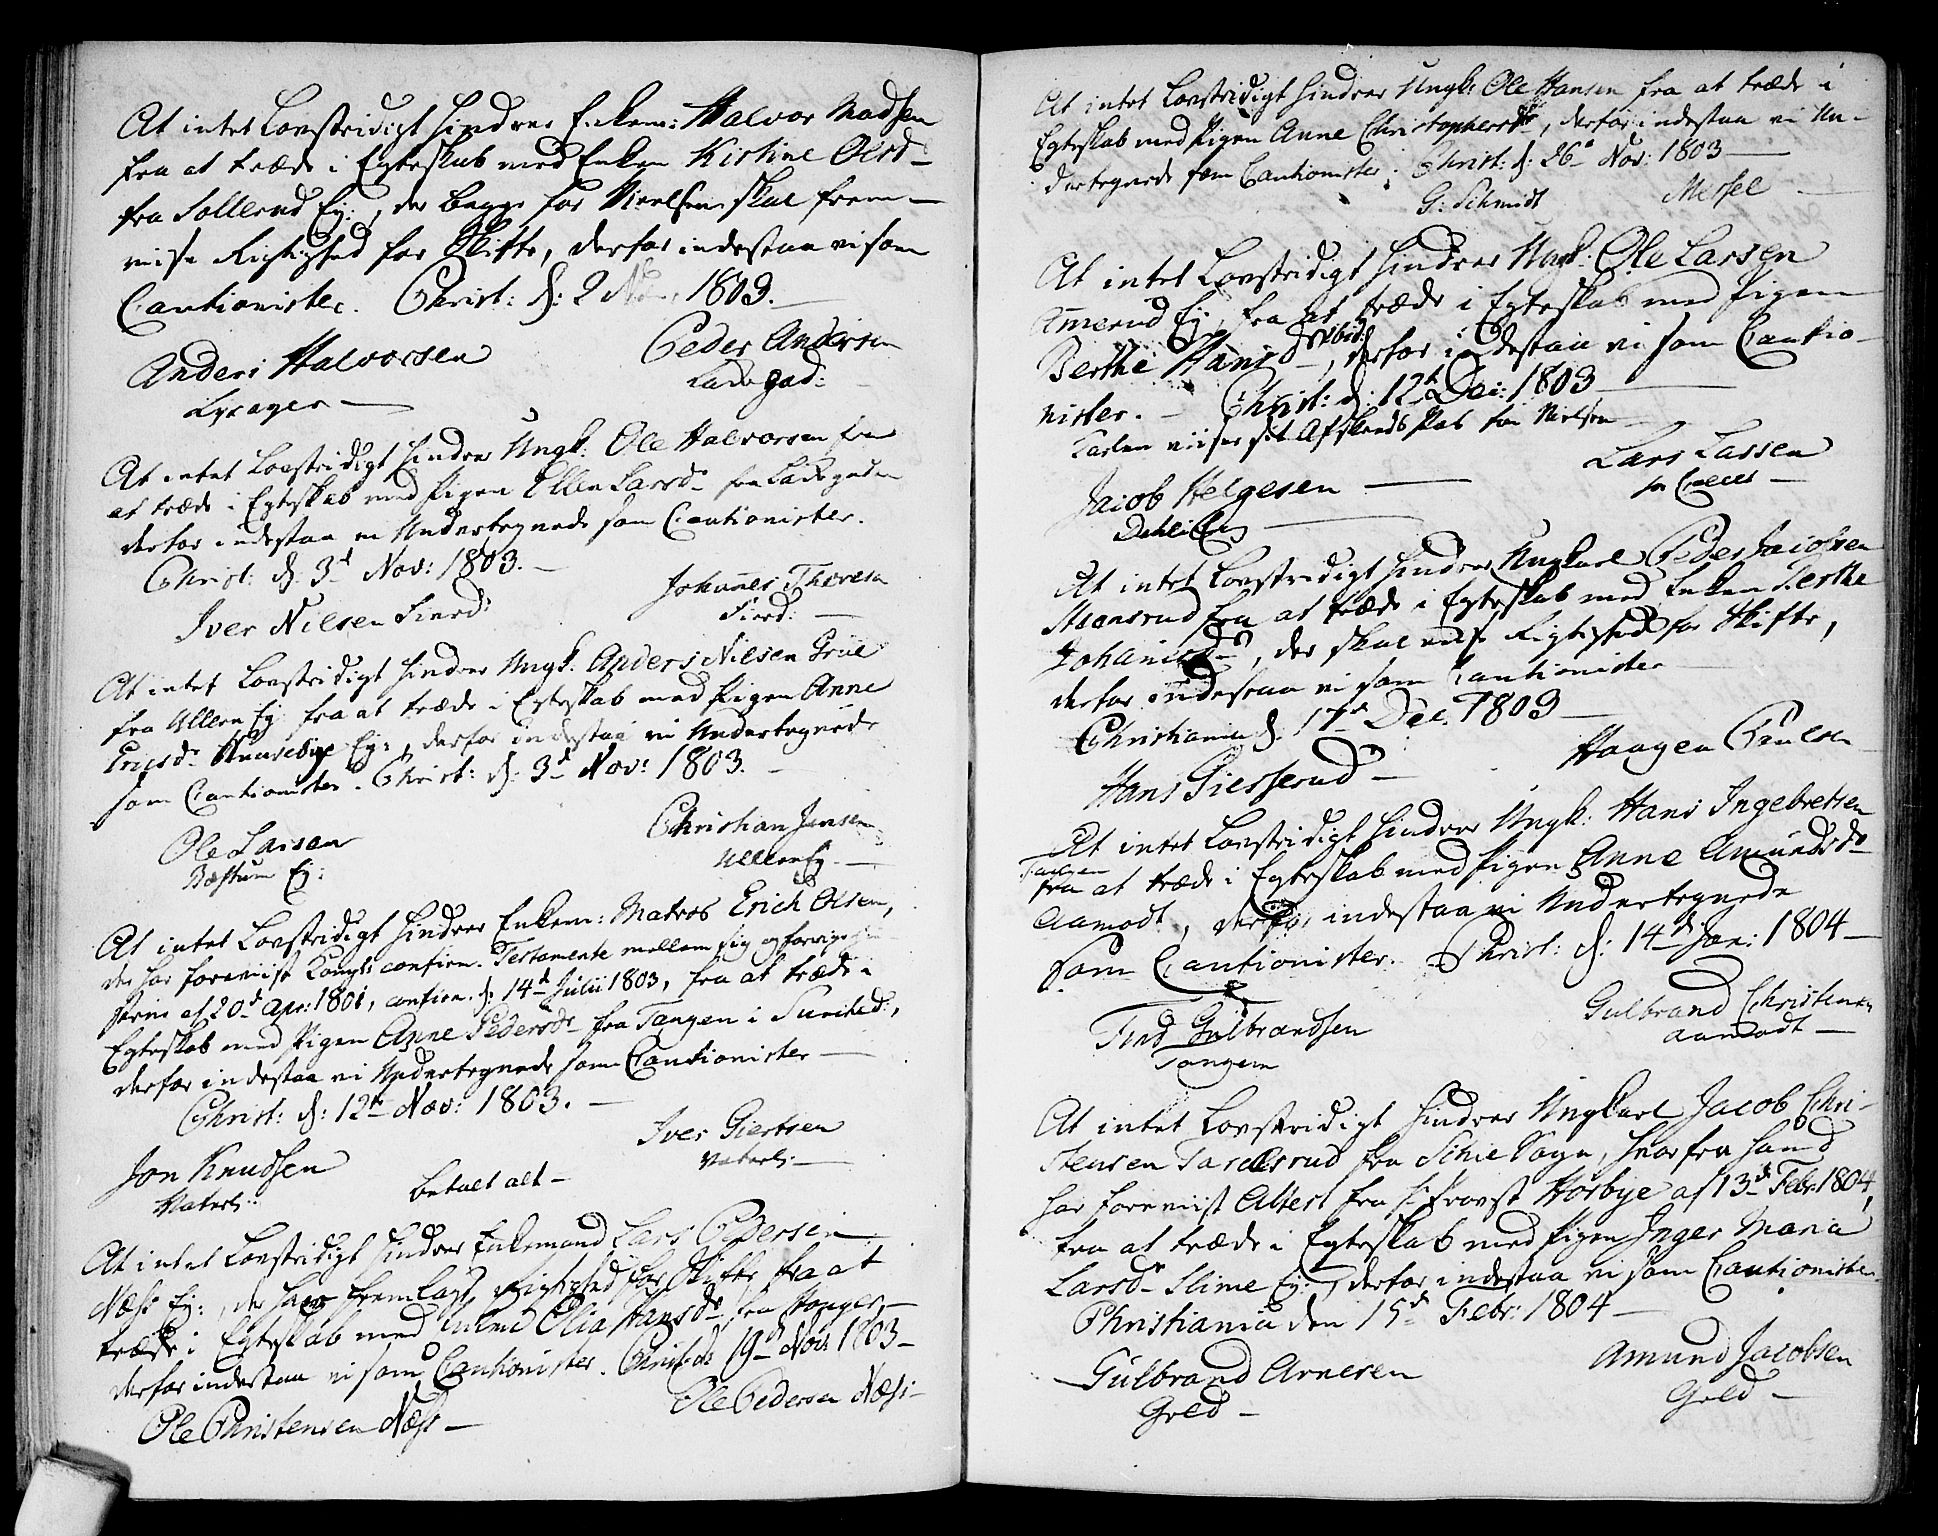 At intet Lovstridigt hindrer Enkem: Halvor Madsen
fra at træde i Egteskab med Enken Kistine Olsd
fra Sollerud Ej:, der begge for Vielsen skal frem-
vise Rigtighed for Skifte, derfor indestaa vi som
Cautionister. Christ: d: 2 Nov. 1803.
Anders Halvorsen Peder Andersen
Lysager Ladegad:
At intet Lovstridigt hindrer Ungk: Ole Halvorsen fra
at træde i Egteskab med Pigen Ellen Larsd fra Ladegaden
derfor indestaa vi Undertegnede som Cautionister.
Christ: d. 3d Nov: 1803.
Iver Nilsen Fierd: Johannes Thoresen
Fierd:
At intet Lovstridigt hindrer Ungk: Anders Nilsen
fra Ullern Ej fra at træde i Egteskab med Pigen Anne
Ericsdr Huusebye Ej:, derfor indestaa vi Undertegnede
som Cautionister. Christ: d: 3d Nov: 1803.
Ole Larsen Christian Jensen
Bæstum Ej: Ullern Ej.
At intet Lovstridigt hindrer Enkem: Matros Erich Olsen,
der har foreviist Kongl: confirm. Testamente mellem sig og forrige
af 20d Apr: 1801, confirm. d: 14d Julii 1803, fra at træde i
Egteskab med Pigen Anne Pedersdr fra Tangen i
derfor indestaa vi Undertegnede som Cautionister
Christ: d: 12te Nov: 1803.
Jon Knudsen Iver Giertsen
Waterl: betalt alt Waterl:
At intet Lovstridigt hindrer Enkemand Lars Pedersen
Næss Ej:, der har fremlagt Rigtighed for Skifte fra at
træde i Egteskab med Olia Hansdr fra
derfor indestaa vi som Cautionister. Christ: d: 19d Nov: 1803
Ole Christensen Næss Ole Pedersen Næss
At intet Lovstridigt hindrer Ungk: Ole Hansen fra at træde i
Egteskab med Pigen Anne Christophersdr, derfor indestaa vi Un-
dertegnede som Cautionister. Christ: d: 26de Nov: 1803
G: Schmidt
At intet Lovstridigt hindrer Ungk: Ole Larsen
Ammerud Ej, fra at træde i Egteskab med Pigen
Berthe Hansd, derfor indestaa vi som Cautio-
nister. Christ: d: 12te Dec: 1803
Karlen viiser sit Afskeeds før Vielsen
Jacob Helgesen Lars Larsen
At intet Lovstridigt hindrer Ungkarl Peder Jacobsen
fra at træde i Egteskab med Enken Berthe
Johanisdr, der skal vise Rigtighed for Skifte,
derfor indestaa vi som Cautionister
Christiania d. 17de Dec. 1803
Hans Giesserud Haagen Paulsen
At intet Lovstridigt hindrer Ungk: Hans Ingebretsen
Tangen
fra at træde i Egteskab med Pigen Anne Amundsdr
Aamodt, derfor indestaa vi Undertegnede
som Cautionister. Christ: d: 14d Jan: 1804
Find Gulbrandsen Gulbrand Christensen
Tangen Aamodt
At intet Lovstridigt hindrer Ungkarl Jacob Chri-
stensen fra Schie Sogn, hvorfra hand
har foreviist Attest fra Hr Provst Horbye af 13d Febr: 1804,
fra at træde i Egteskab med Pigen Inger Maria
Larsdr Slime Ej:, derfor indestaa vi som Cautionister.
Christiania den 15d Febr: 1804
Gulbrand Arnesen Amund Jacobsen